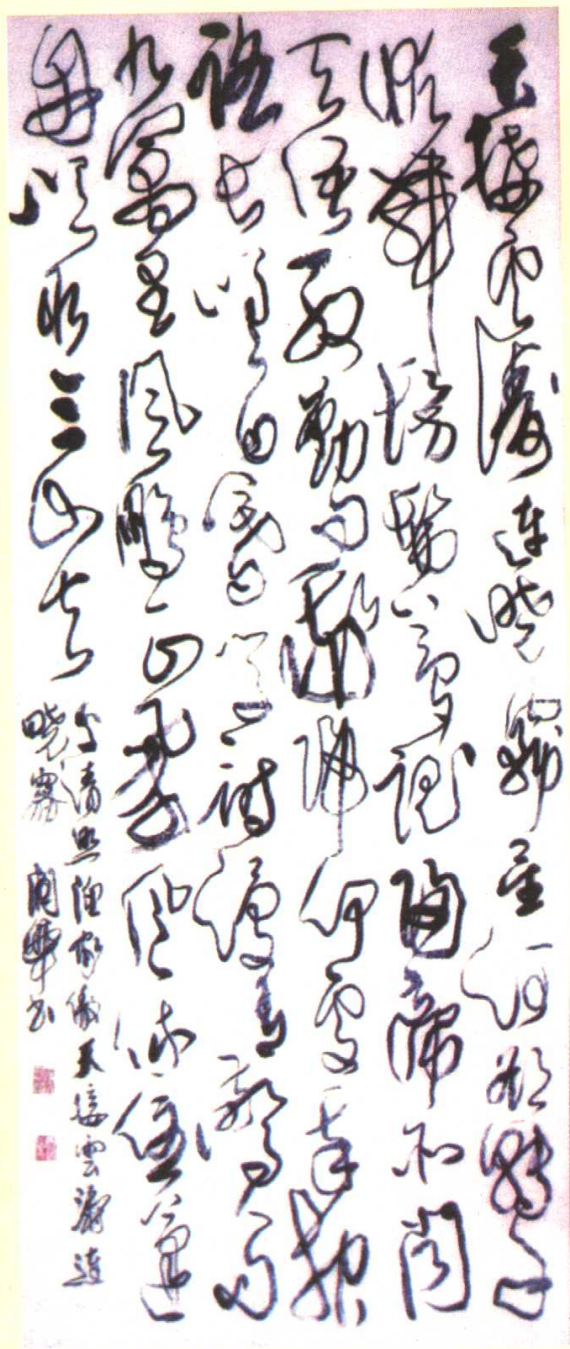 天接雲濤連曉霧星河欲轉千
帆舞彷彿夢魂歸帝所聞
天語殷勤問我歸何處我報
路長嗟日暮學詩謾有驚人句
九萬里風鵬正舉風休住蓬
舟吹取三山去
李清照漁家傲天接雲濤連
曉霧 華书